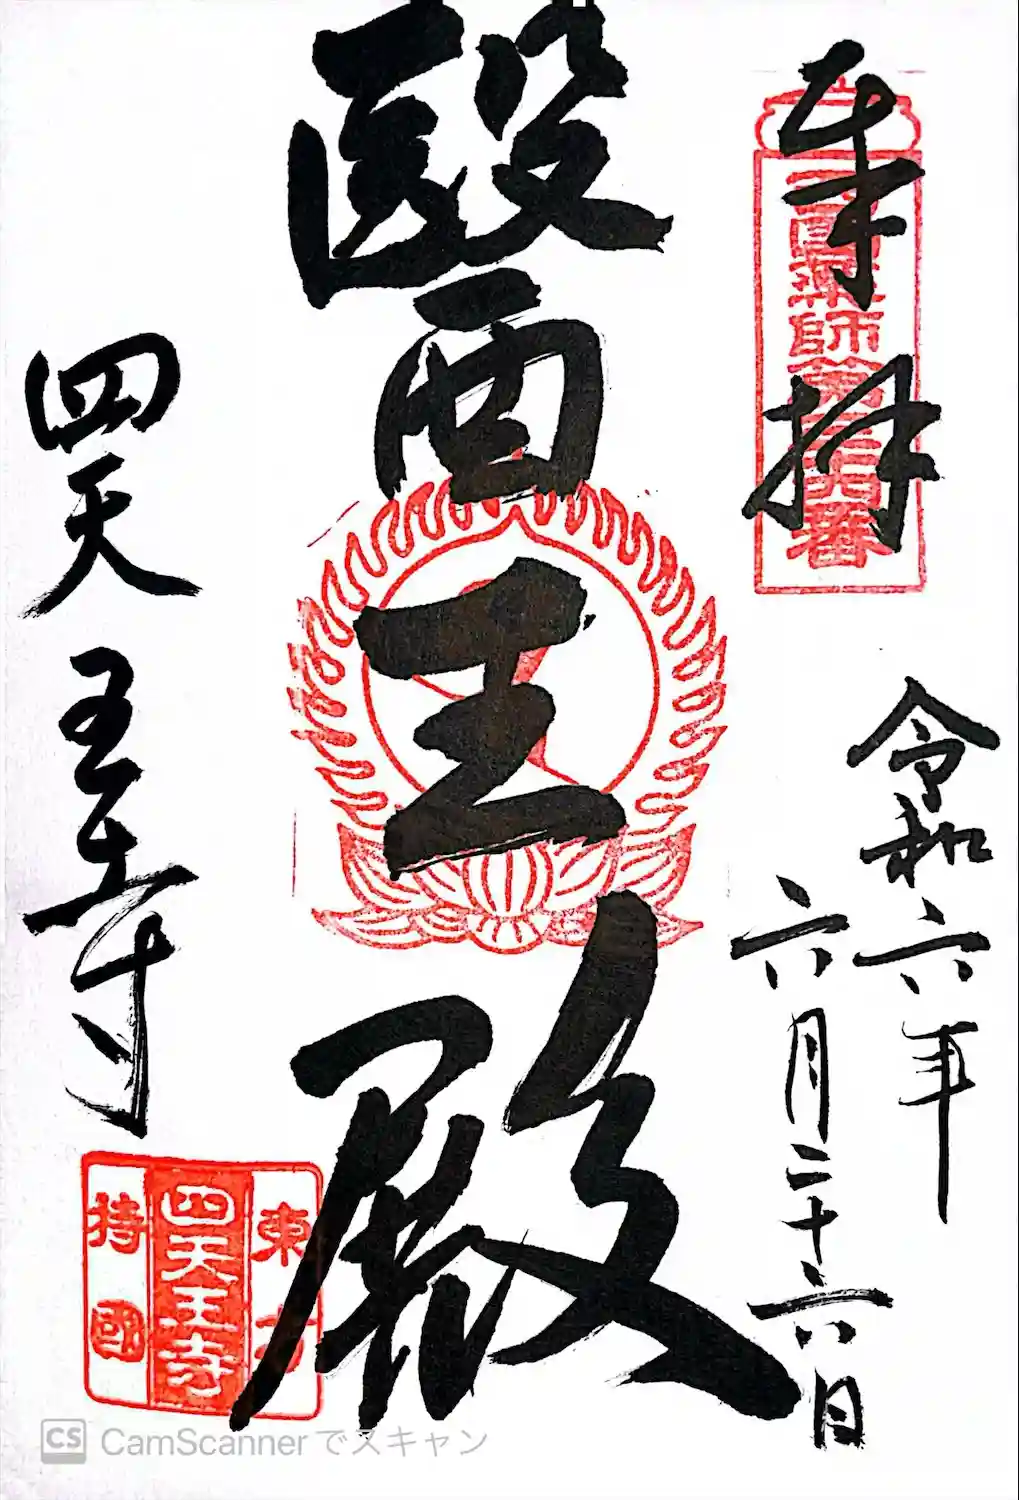 奉拝
西國薬師第十六番
令和六年
六月二十六日
醫王殿
四天王寺
東方
四天王寺
持國
CS CamScannerでスキャン